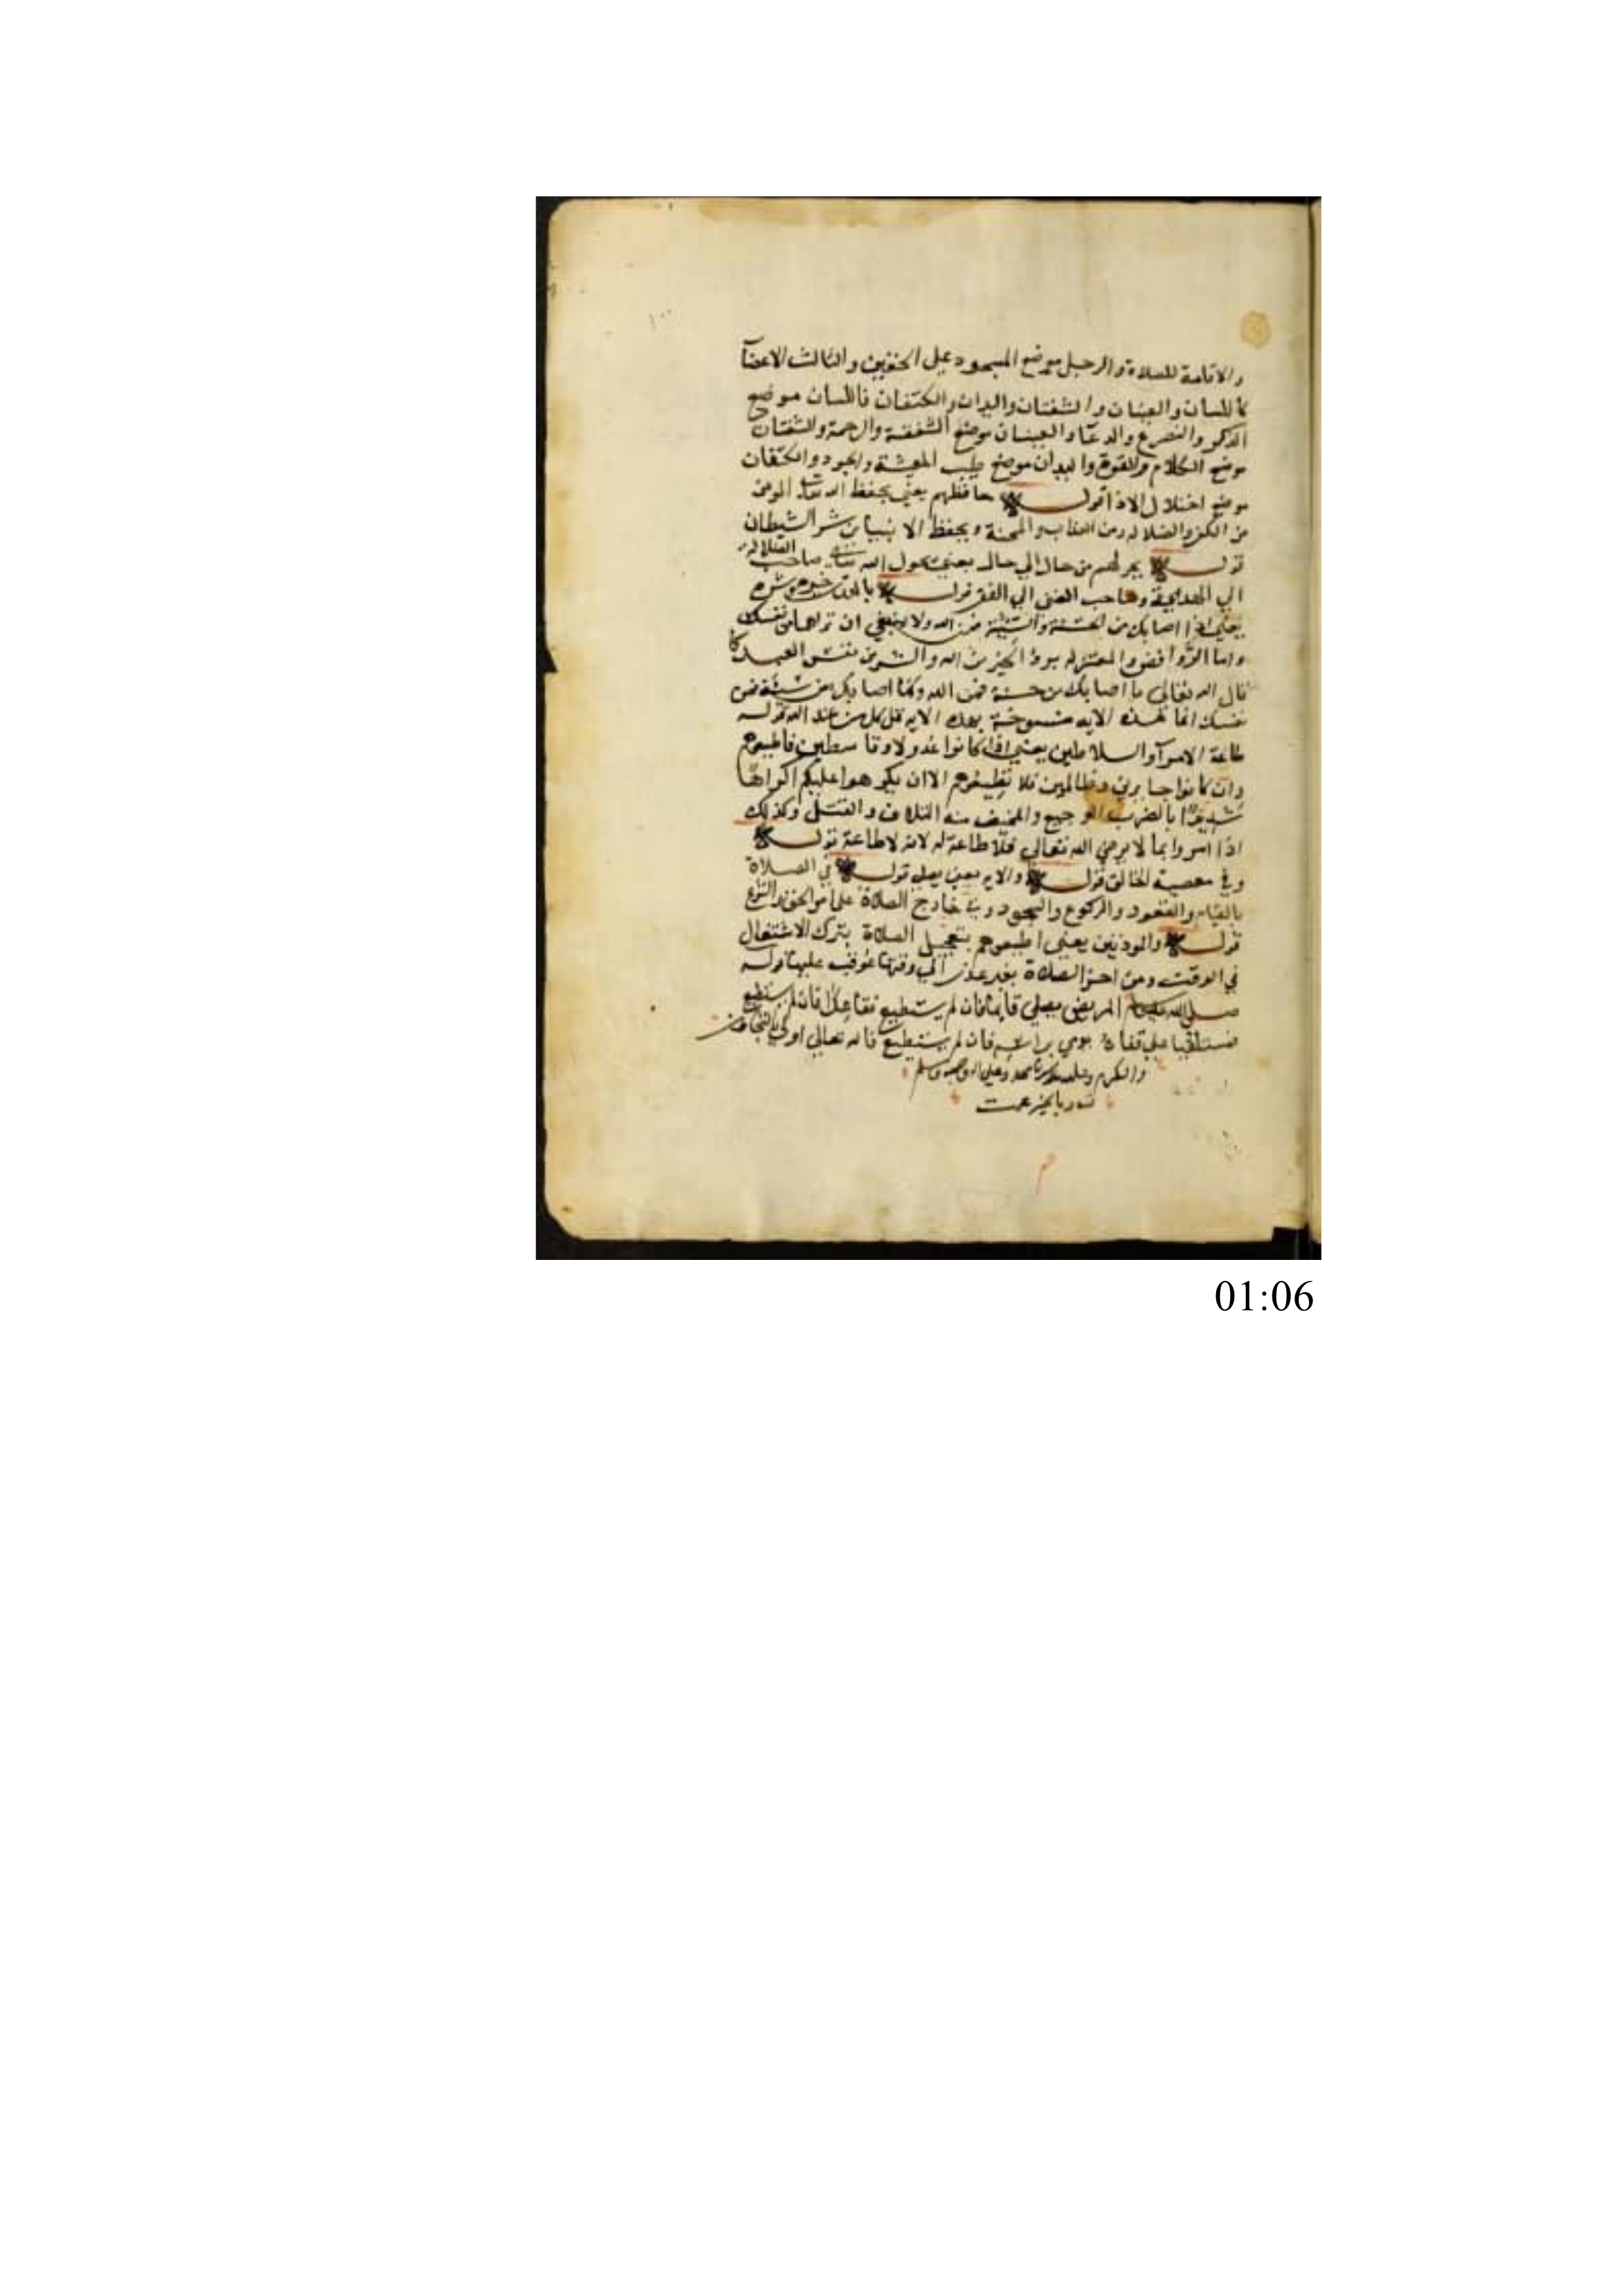 والاقامة للصلاة والرجل موضع السجود على الخفين والثالث الاعضآ
كاللسان والعينان والشفتان واليدان والكتفان فاللسان موضع
الذكر والتضرع والدعآ والعينان موضع الشفقة والرحمة والشفتان
موضع الكلام والقوة واليدان موضع طيب المعيشة والجود والكتفان
موضع الاذا قوله حافظهم يعني يحفظ الله المومن
من الكفر والضلاله ومن العذاب والمحنة ويحفظ الانبيا من شر الشيطان
قوله من حال الي حال يعني يحول الله صاحب الضلاله
الي الهداية وصاحب الغنى الي الفقر قوله خيره وشره
يعني اذا اصابك من الحسنة والسيئة فمن الله ولا ينبغي ان تراها من نفسك
واما الروافض والمعتزله يروا الخير من الله والشر من نفس العبد كما
قال الله تعالى ما اصابك من حسنة فمن الله وما اصابك من سيئة فمن
نفسك انما هذه الايه منسوخة بهذه الايه قل كل من عند الله قوله
طاعة الامرآ والسلاطين يعني اذا كانوا عدولا وقاسطين فاطيعوهم
وان كانوا جايرين وظالمين فلا تطيعوهم الا ان يكرهوا عليكم اكراها
شديدا بالضرب الوجيع والمخيف منه التلاف والقتل وكذلك
اذا امروا بما لا يرضي الله تعالى فلا طاعة له لانه لا طاعة قوله
وفي معصية الخالق قوله والايه يعني يصلي قوله في الصلاة
بالقيام والقعود والركوع والسجود وفي خارج الصلاة على
قوله والموذنين يعني اطيعوهم بتعجيل الصلاة بترك الاشتغال
في الوقت ومن اخر الصلاة بغير عذر الي وقتها عوقب عليها قوله
صلى الله عليه المريض يصلي قايما فان لم يستطيع فقاعدا فان لم يستطيع
فمستلقيا على قفاه يومي براسه فان لم يستطيع فالله تعالي اولي بالتجاوز
والكرم وصلى الله على سيدنا محمد وعلى اله وصحبه وسلم
بالخير عمت
01:06